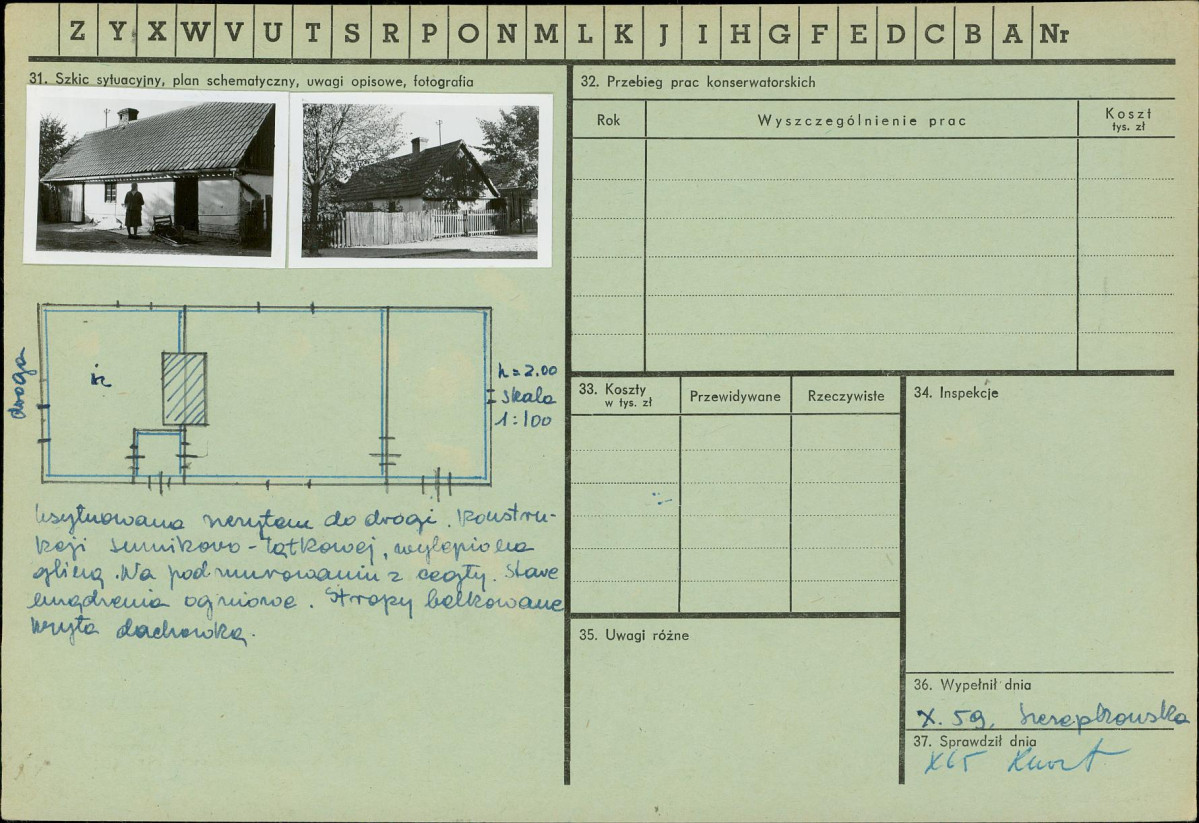 Z Y X W V U T S R P O N M L K J I H G F E D C B A Nr
31. Szkic sytuacyjny, plan schematyczny, uwagi opisowe, fotografia
droga
iz
h = 2.00
skala
1:100
usytuowana szczytem do drogi. Konstru-
kcji sumikowo-łątkowej, wylepiona
gliną. Na podmurowaniu z cegły. Stare
urządzenia ogniowe. Stropy belkowane
kryta dachówką.
32. Przebieg prac konserwatorskich
Rok
Wyszczególnienie prac
Koszt
tys. zł
33. Koszty
w tys. zł
Przewidywane
Rzeczywiste
34. Inspekcje
35. Uwagi różne
36. Wypełnił dnia
X. 59.
37. Sprawdził dnia